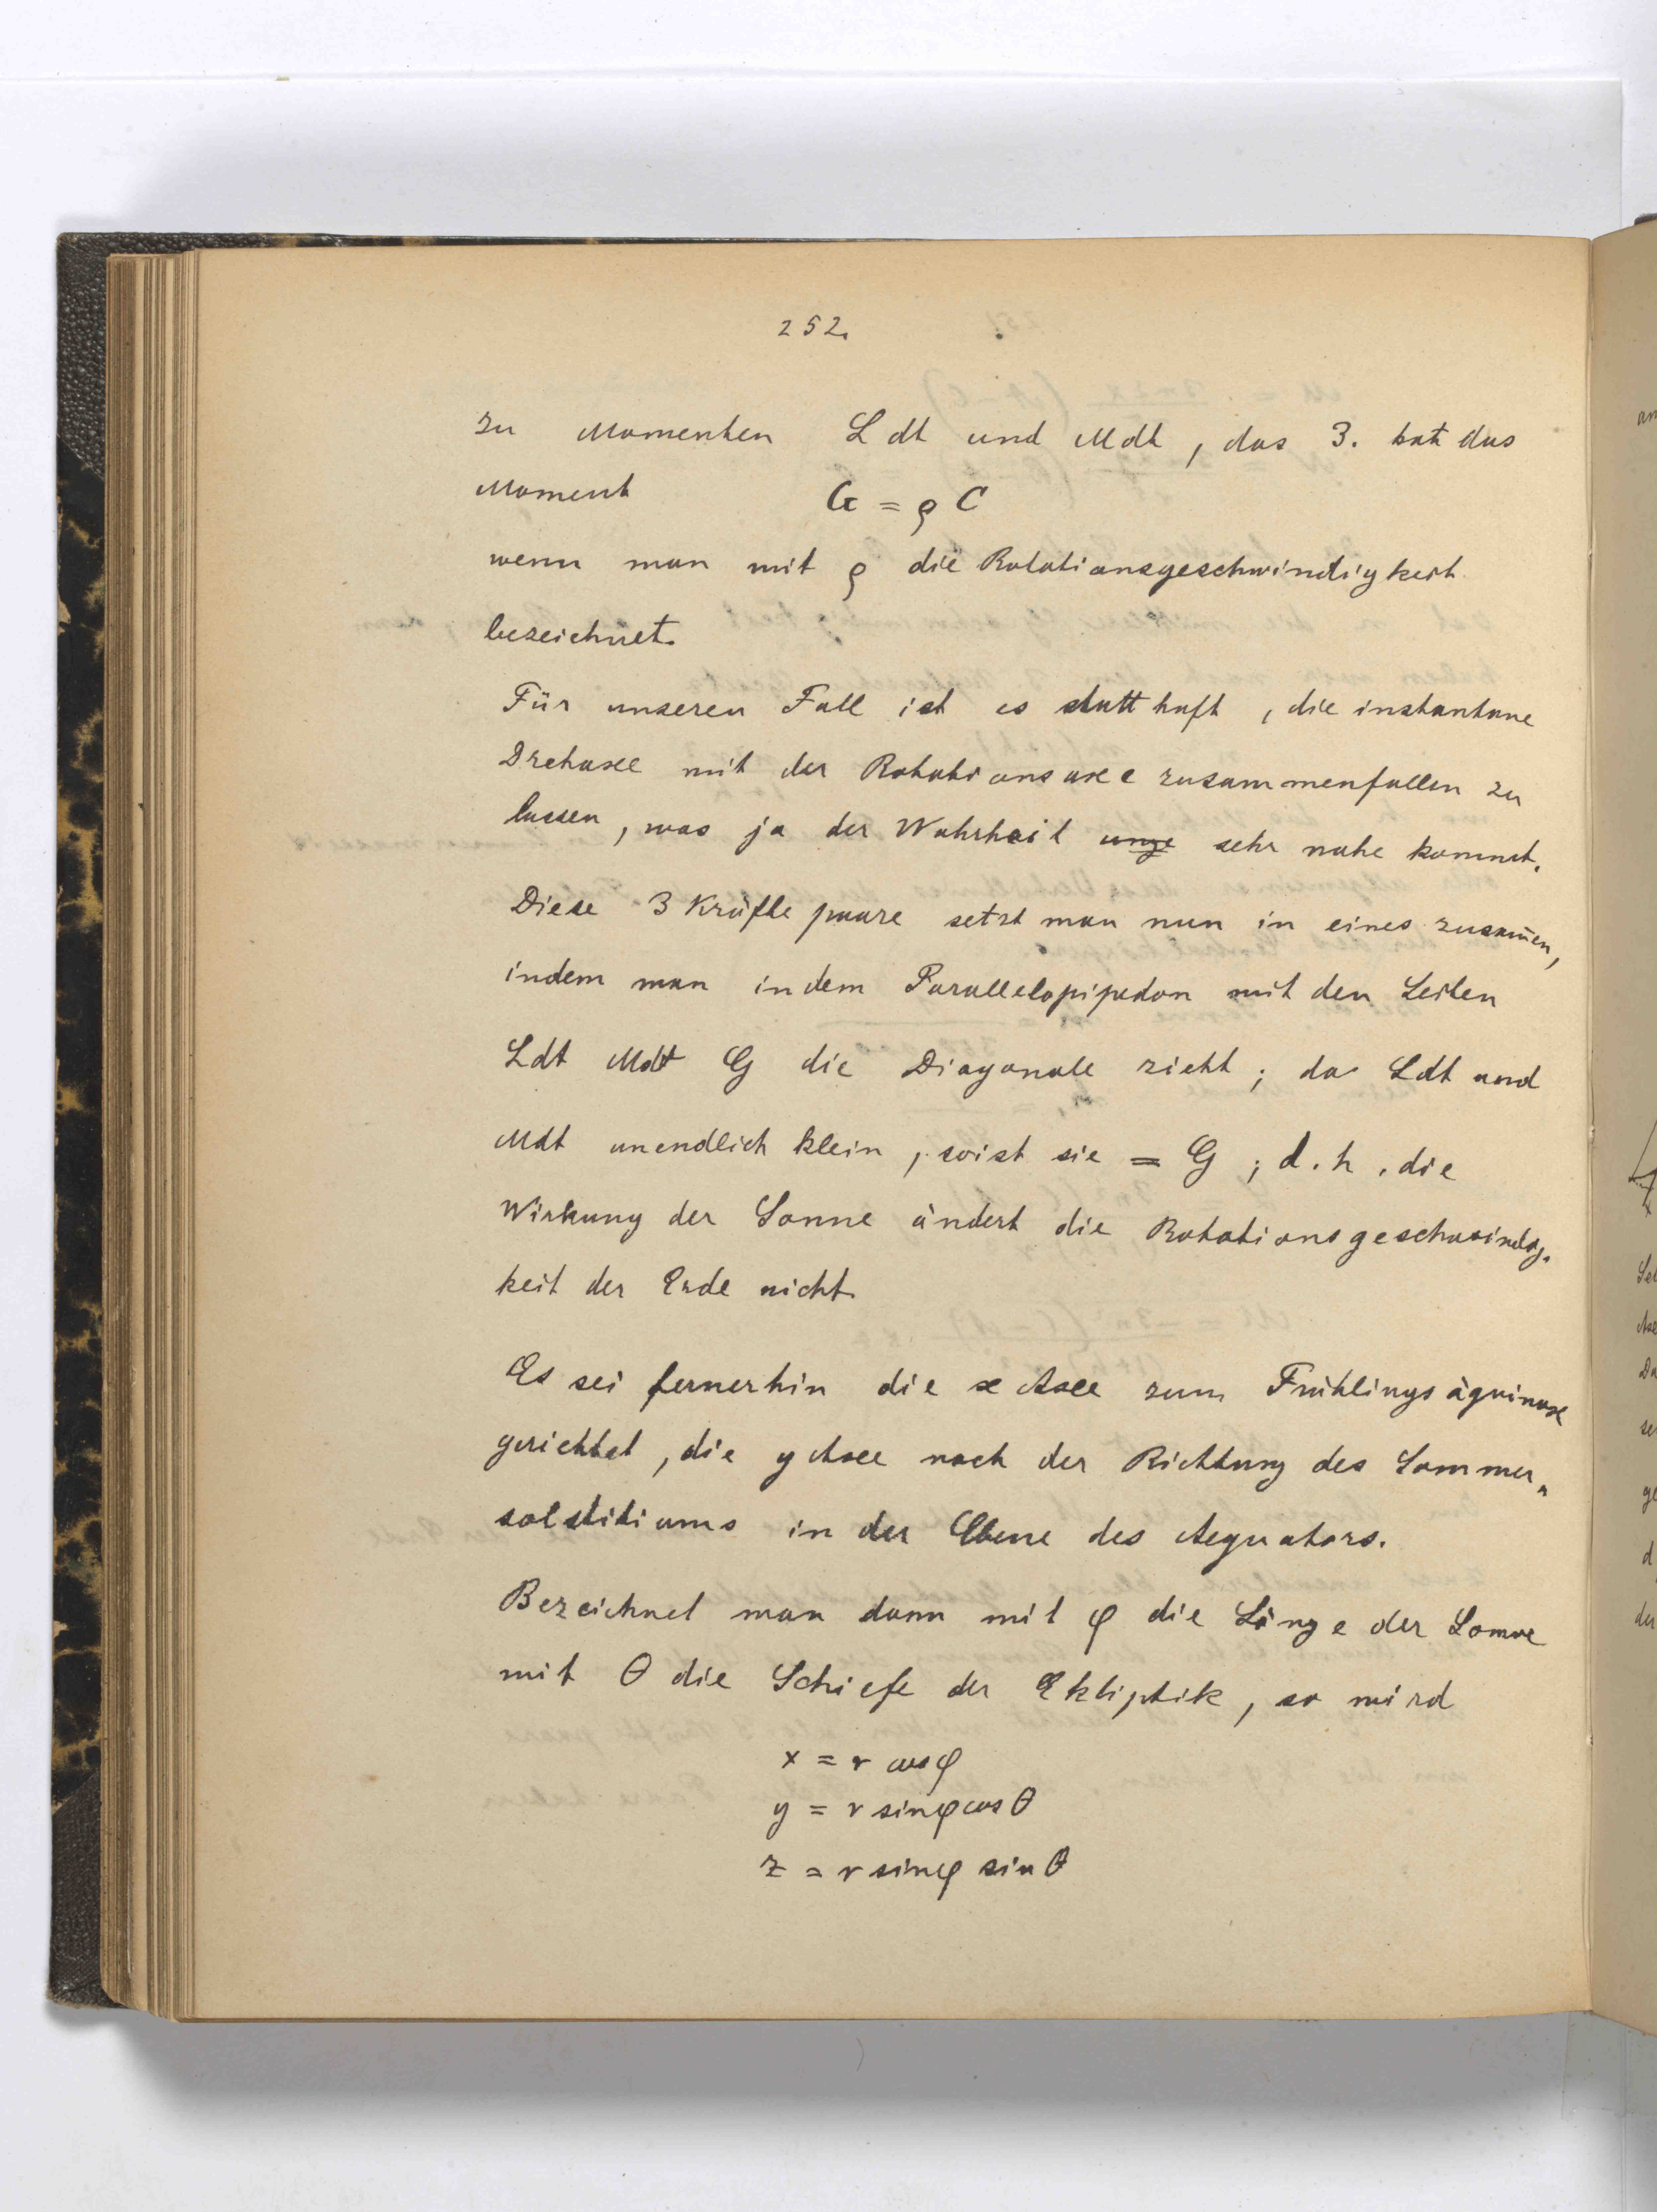 252.
zu Momenten L dt und Mdt, das 3. hat das
Moment G = ϱ C
wenn man mit ϱ die Rotationsgeschwindigkeit
bezeichnet.
Für unseren Fall ist es statthaft, die instantane
Drehaxe mit der Rotationsaxe zusammenfallen zu
lassen, was ja der Wahrheit unge sehr nahe kommt.
Diese 3 Kräftepaare setzt man nun in eines zusam̄en,
indem man in dem Parallelopipedon mit den Seiten
Ldt Mdt G die Diagonale zieht; da Ldt und
Mdt unendlich klein, so ist sie = G; d.h. die
Wirkung der Sonne ändert die Rotationsgeschwindig-
keit der Erde nicht.
Es sei fernerhin die x Axe zum Frühlingsäquinox
gerichtet, die y Axe nach der Richtung des Sommer-
solstitiums in der Ebene des Aequators.
Bezeichnet man dann mit φ die Länge der Sonne
mit θ die Schiefe der Ekliptik, so wird
x = r cos φ
y = r sin φ cos θ
z = r sin φ sin θ